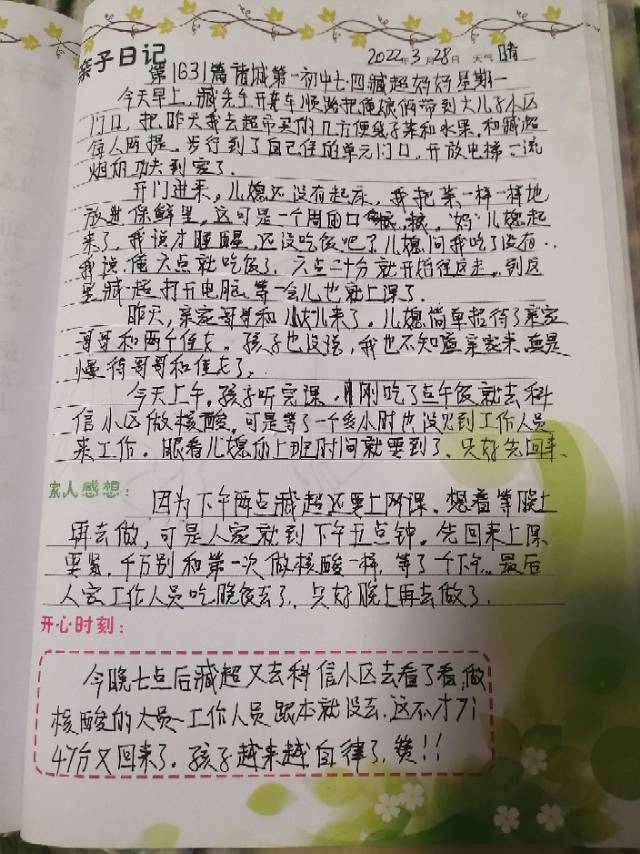 亲子日记
2022年3月28日 天气 晴
第1631篇诸城第一初中七.四臧超妈妈 星期一
今天早上,臧先生开轿车顺路把俺娘俩带到大儿子小区
门口,把昨天我去超市买的几方便袋子菜和水果,和臧超
每人两提。步行到了自己住的单元门口,开放电梯一流
烟的功夫到家了。
开门进来,儿媳还没有起床,我把菜一样一样地
放进保鲜里,这可是一个周的口粮,"妈"儿媳起
来了,我说才睡醒,还没吃饭吧?儿媳问我吃了没有..
我说,俺六点就吃饭了,六点二十分就开始往这走。到这
里臧超打开电脑,等一会儿也就上课了.
昨天,亲家哥哥和来了。儿媳简单招待了亲家
哥哥和两个侄女。孩子也没强,我也不知道亲家来,
慢待哥哥和侄女了.
今天上午。孩子听完课,刚吃了点午饭就去科
信小区做核酸。可是等了一个多小时也没见到工作人员
来工作。眼看儿媳的上班时间就要到了、只好先回来、
家人感想:
因为下午两点臧超还要上网课。想着等晚上
再去做,可是人家就到下午五点钟。先回来上课
要紧,千万别和第一次做核酸一样,等了一个下午。最后
人家工作人员吃晚饭去了,只好晚上再去做了.
开心时刻:
今晚七点后臧超又去科信小区去看了看,做
核酸的人员-工作人员跟本就没去,这不才7:
47分又回来了.孩子越来越自律了,赞!!